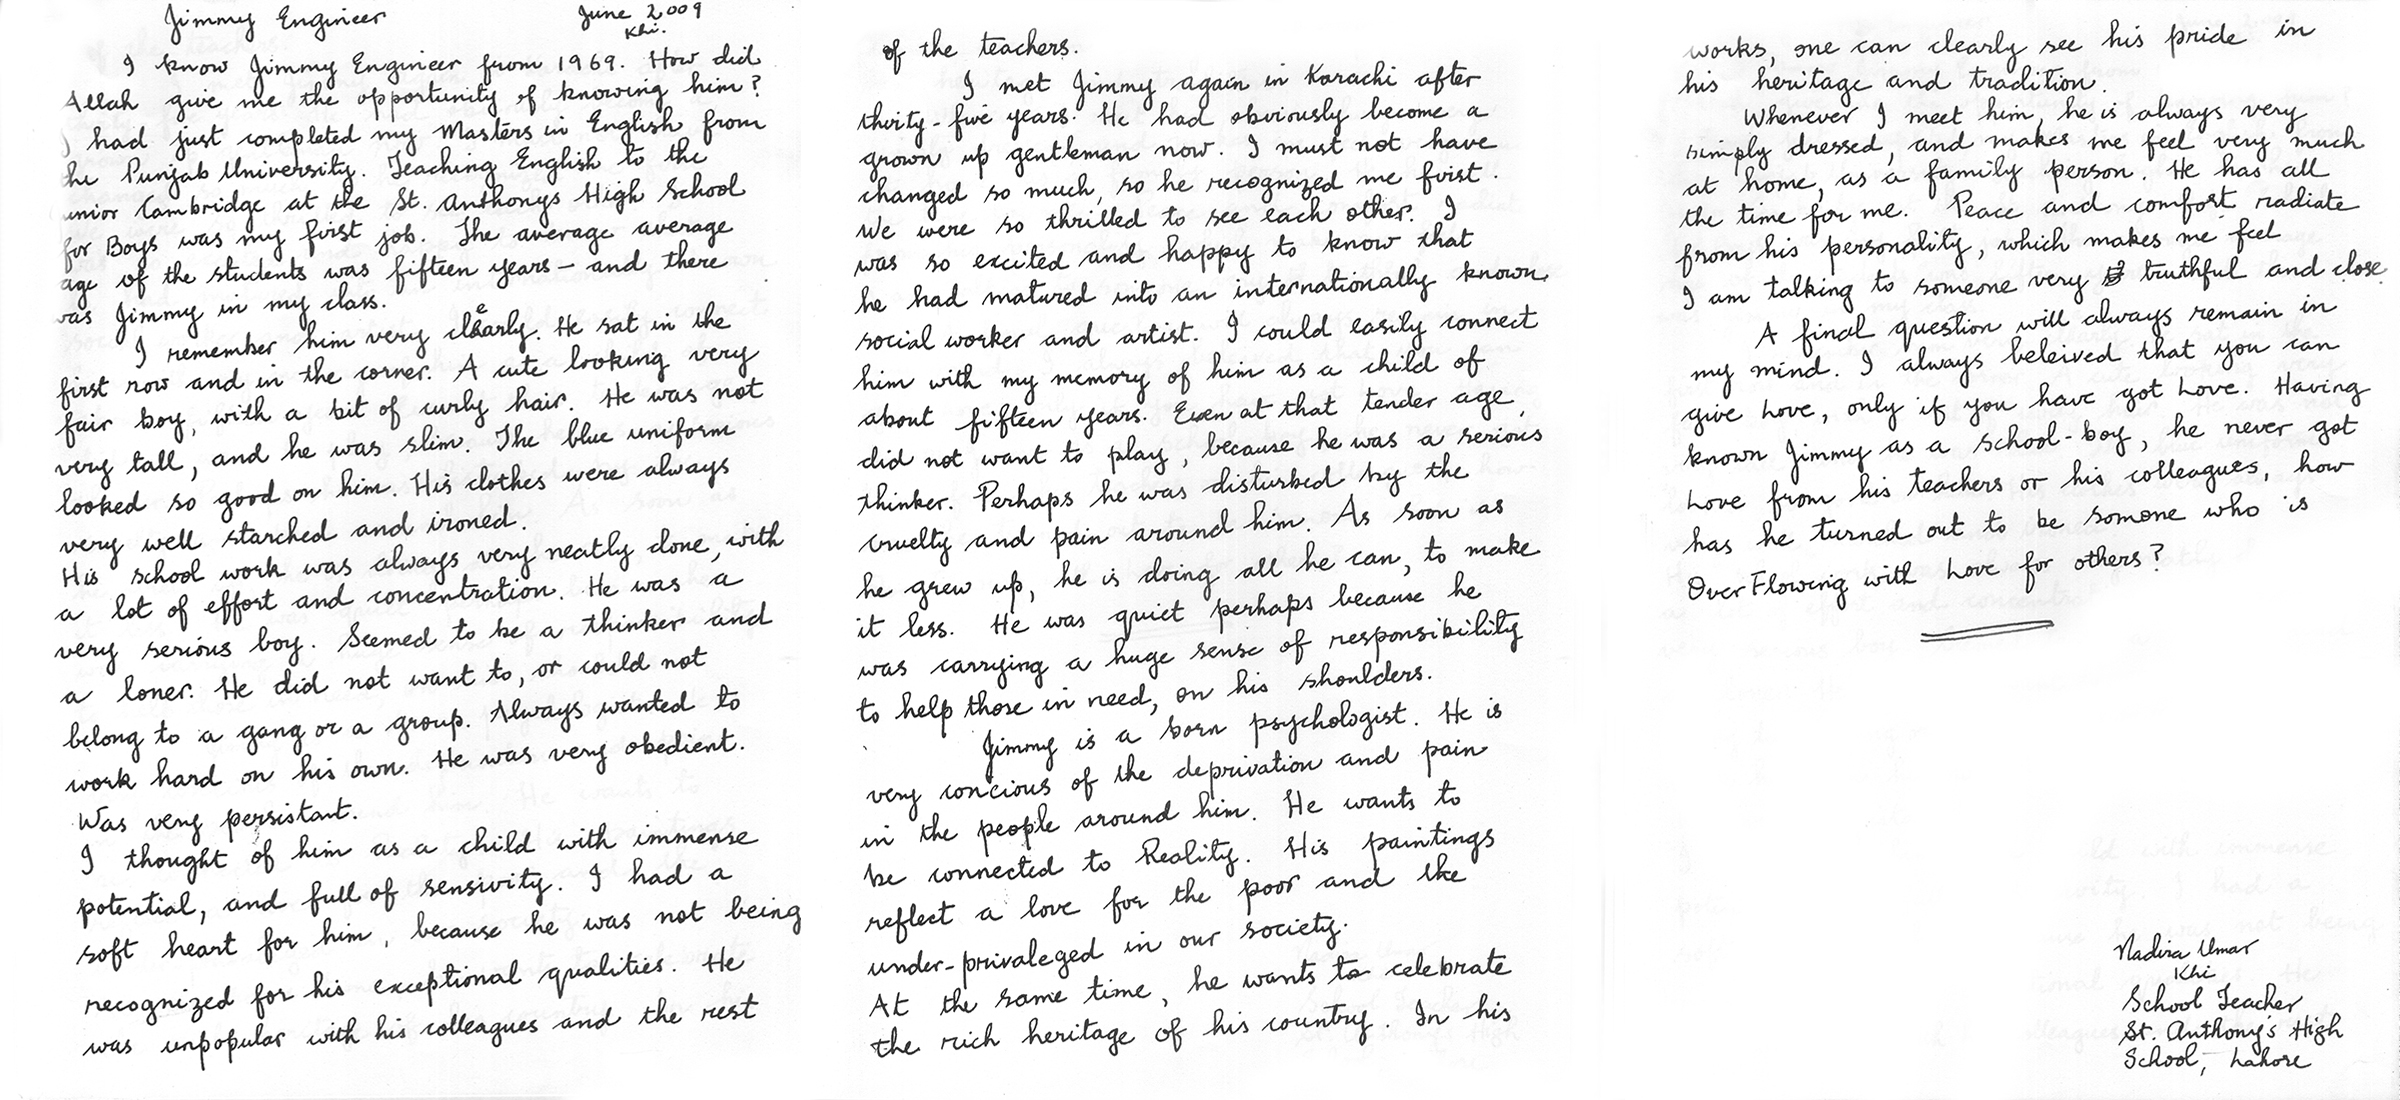 Jimmy Engineer
June 2009
Khi.
I know Jimmy Engineer from 1969. How did
Allah give me the opportunity of knowing him?
I had just completed my Masters in English from
he Punjab University. Teaching English to the
unior Cambridge at the St. Anthonys High School
for Boys was my first job. The average average
age of the students was fifteen years - and there
was Jimmy in my class.
I remember him very clearly. He sat in the
first row and in the corner. A cute looking very
fair boy, with a bit of curly hair. He was not
very tall, and he was slim. The blue uniform
looked so good on him. His clothes were always
very well starched and ironed.
His school work was always very neatly done, with
a lot of effort and concentration. He was a
very serious boy. Seemed to be a thinker and
a loner. He did not want to, or could not
belong to a gang or a group. Always wanted to
work hard on his own. He was very obedient.
Was very persistant.
I thought of him as a child with immense
potential, and full of sensivity. I had a
soft heart for him, because he was not being
recognized for his exceptional qualities. He
was unpopular with his colleagues and the rest
of the teachers.
I met Jimmy again in Karachi after
thirty-five years. He had obviously become a
grown up gentleman now. I must not have
changed so much, so he recognized me first.
We were so thrilled to see each other. I
was so excited and happy to know that
he had matured into an internationally known
social worker and artist. I could easily connect
him with my memory of him as a child of
about fifteen years. Even at that tender age,
did not want to play, because he was a serious
thinker. Perhaps he was disturbed by the
cruelty and pain around him. As soon as
he grew up, he is doing all he can, to make
it less. He was quiet perhaps because he
was carrying a huge sense of responsibility
to help those in need, on his shoulders.
Jimmy is a born psychologist. He is
very concious of the deprivation and pain
in the people around him. He wants to
be connected to Reality. His paintings
reflect a love for the poor and the
under-privaleged in our society.
At the same time, he wants to celebrate
the rich heritage of his country. In his
works, one can clearly see his pride in
his heritage and tradition.
Whenever I meet him, he is always very
simply dressed, and makes me feel very much
at home, as a family person. He has all
the time for me. Peace and comfort radiate
from his personality, which makes me feel
I am talking to someone very truthful and close.
A final question will always remain in
my mind. I always beleived that you can
give Love, only if you have got Love. Having
known Jimmy as a school-boy, he never got
Love from his teachers or his colleagues, how
has he turned out to be somone who is
Over Flowing with Love for others?
Nadira Umar
Khi
School Teacher
St. Anthony's High
School, Lahore